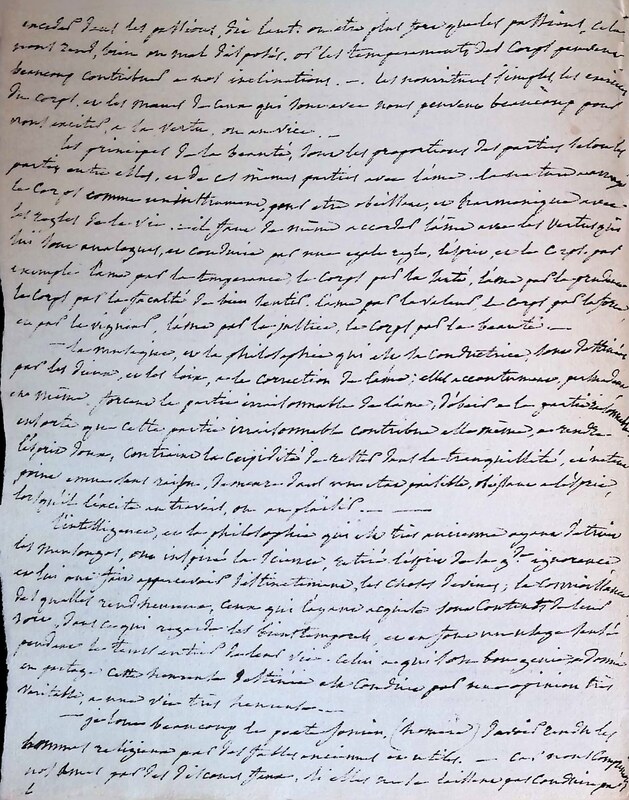 exceder dans les passions, dit tout: on etre plus fort que les passions, cela
nous rend, bien ou mal disposés. or les temperaments des Corps peuvent
beaucoup contribuer a nos inclinations. — les nourritures simples, les exercices
du corps, et les mœurs de ceux qui sont avec nous peuvent beaucoup pour
nous exciter, a la vertu, ou au vice. —
les principes de la beauté, sont les proportions des parties selon les
parties entre elles, et de ces mêmes parties avec l'ame. la nature a
le Corps comme un instrument, pour etre obeissant, et harmonique avec
les regles de la vie — il faut de même accorder l'ame avec les Vertus qui
lui sont analogues, et conduire par une regle, l'esprit, et le Corps. par
exemple l'ame par la temperance, le corps par la santé, l'ame par la prudence
le Corps par la faculté de bien sentir, l'ame par la valeur, le corps par la force
et par la vigueur, l'ame par la justice, le corps par la beauté. —
— la musique, et la philosophie qui est la conductrice, sont destinées
par les dieux, et les loix, a la correction de l'ame; elles accoutument, persuadent
et même, forcent la partie irraisonnable de l'ame, d'obeir a la partie raisonnable
en sorte que cette partie irraisonnable contribue elle même, a rendre
l'esprit doux, contraint la cupidité de rester dans la tranquillité, et n'etre
point emue sans raison, demeure dans un etat paisible, obeissant a l'esprit,
lorsqu'il l'excite au travail, ou au plaisir — —
l'intelligence, et la philosophie qui est tres ancienne ayant detruit
les mensonges, ont inspiré la Science, retiré l'esprit de la gde ignorance
et lui ont fait appercevoir distinctement, les choses divines; la
des quelles rend heureux, Ceux qui l'ayant acquise sont Contents de leur
sort, dans ce qui regarde les biens temporels, et en font un usage
pendant le tems entier de leur vie. Celui a qui son bon genie a donné
en partage cette heureuse destinée est Conduit par une opinion tres
veritable, a une vie tres heureuse —
— je loue beaucoup le poete Ionien (homere) d'avoir rendu les
hommes religieux par des fables anciennes et utiles. — Car nous
nos ames par des discours faux, si elles ne se laissent pas conduire par